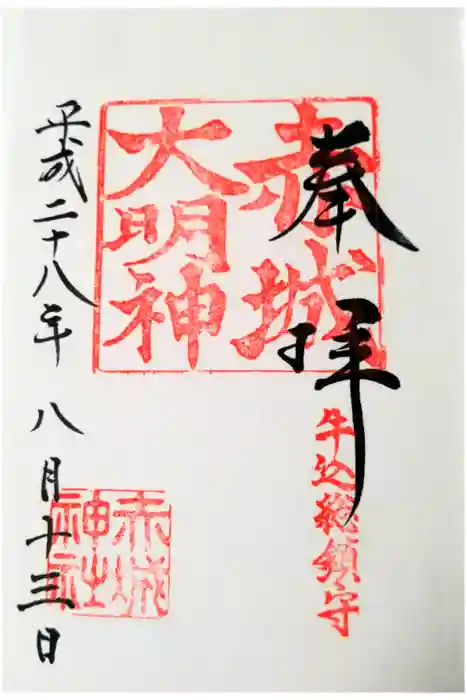 奉拝
牛込総鎮守
赤城
大明神
赤城
神社
平成二十八年八月十三日